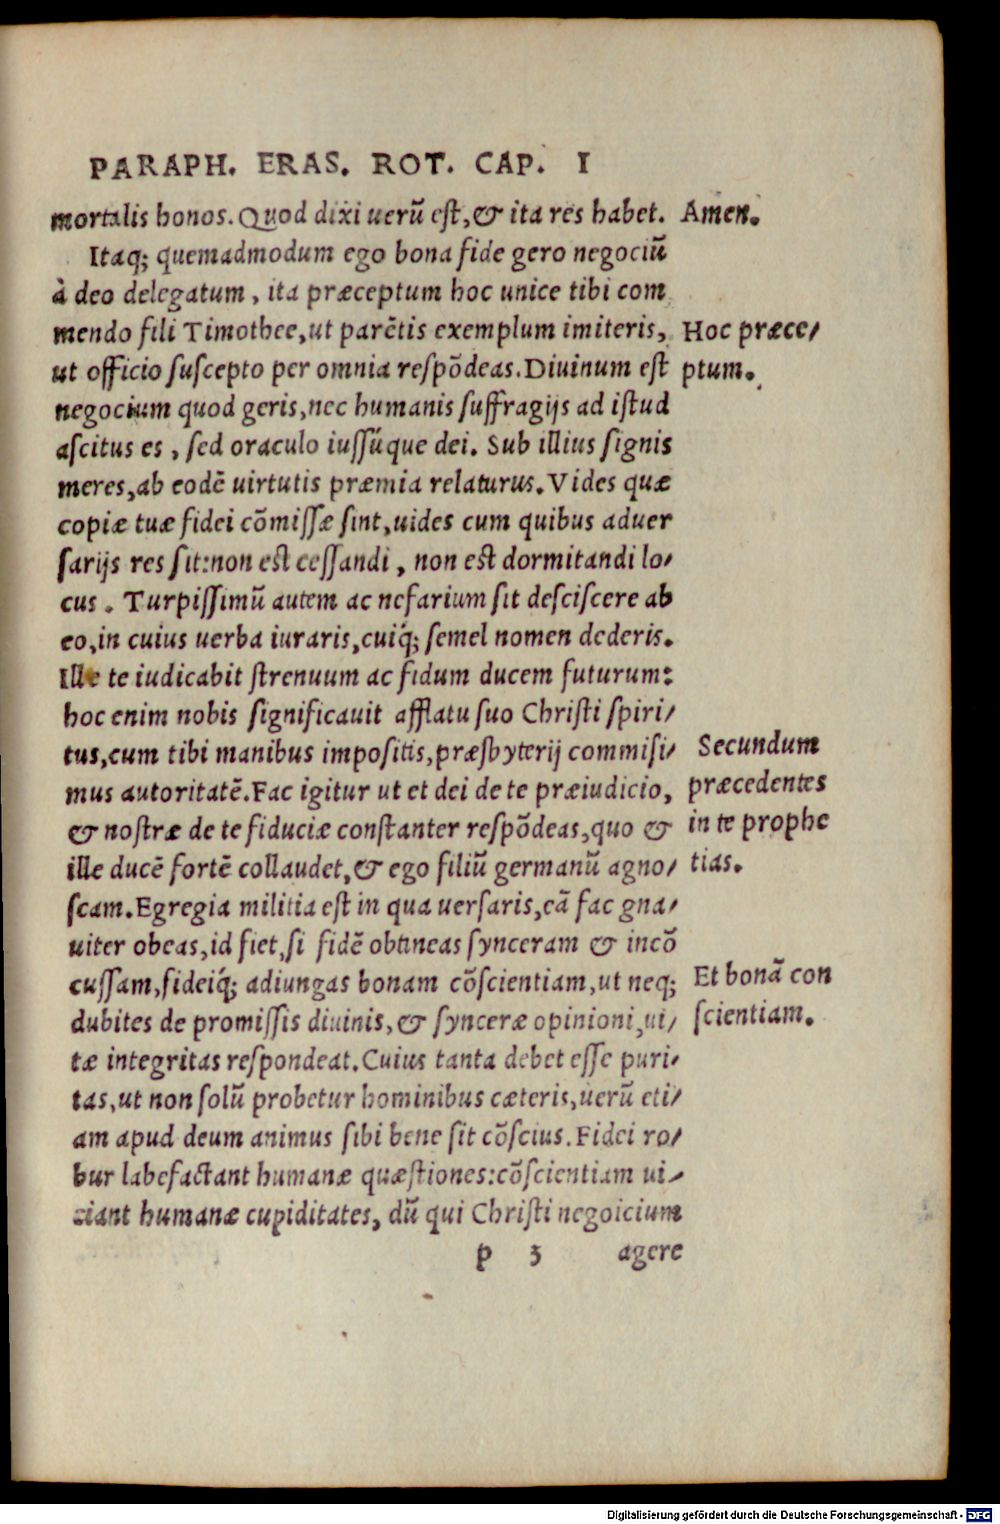 PARAPH. ERAS. ROT. CAP. I
mortalis honos. Quod dixi uerũ est, & ita res habet. Amen.
Itaq; quemadmodum ego bona fide gero negociũ
à deo delegatum, ita præceptum hoc unice tibi com
mendo fili Timothee, ut parẽtis exemplum imiteris, Hoc præce/
ut officio suscepto per omnia respõdeas. Diuinum est ptum.
negocium quod geris, nec humanis suffragijs ad istud
ascitus es, sed oraculo iussúque dei. Sub illius signis
meres, ab eodẽ uirtutis præmia relaturus. Vides quæ
copiæ tuæ fidei cõmissæ sint, uides cum quibus aduer
sarijs res sit: non est cessandi, non est dormitandi lo/
cus. Turpissimũ autem ac nefarium sit desciscere ab
eo, in cuius uerba iuraris, cuiq́; semel nomen dederis.
Ille te iudicabit strenuum ac fidum ducem futurum:
hoc enim nobis significauit afflatu suo Christi spiri/
tus, cum tibi manibus impositis, præsbyterij commisi/ Secundum
mus autoritatẽ. Fac igitur ut et dei de te præiudicio, præcedentes
& nostræ de te fiduciæ constanter respõdeas, quo & in te prophe
ille ducẽ fortẽ collaudet, & ego filiũ germanũ agno/ tias.
scam. Egregia militia est in qua uersaris, eã fac gna/
uiter obeas, id fiet, si fidẽ obtineas synceram & incõ
cussam, fideiq́; adiungas bonam cõscientiam, ut neq; Et bonã con
dubites de promissis diuinis, & synceræ opinioni, ui/ scientiam.
tæ integritas respondeat. Cuius tanta debet esse puri/
tas, ut non solũ probetur hominibus cæteris, uerũ eti/
am apud deum animus sibi bene sit cõscius. Fidei ro/
bur labefactant humanæ quæstiones: cõscientiam ui/
ciant humanæ cupiditates, dũ qui Christi negoicium
p 3 agere
Digitalisierung gefördert durch die Deutsche Forschungsgemeinschaft - DFG